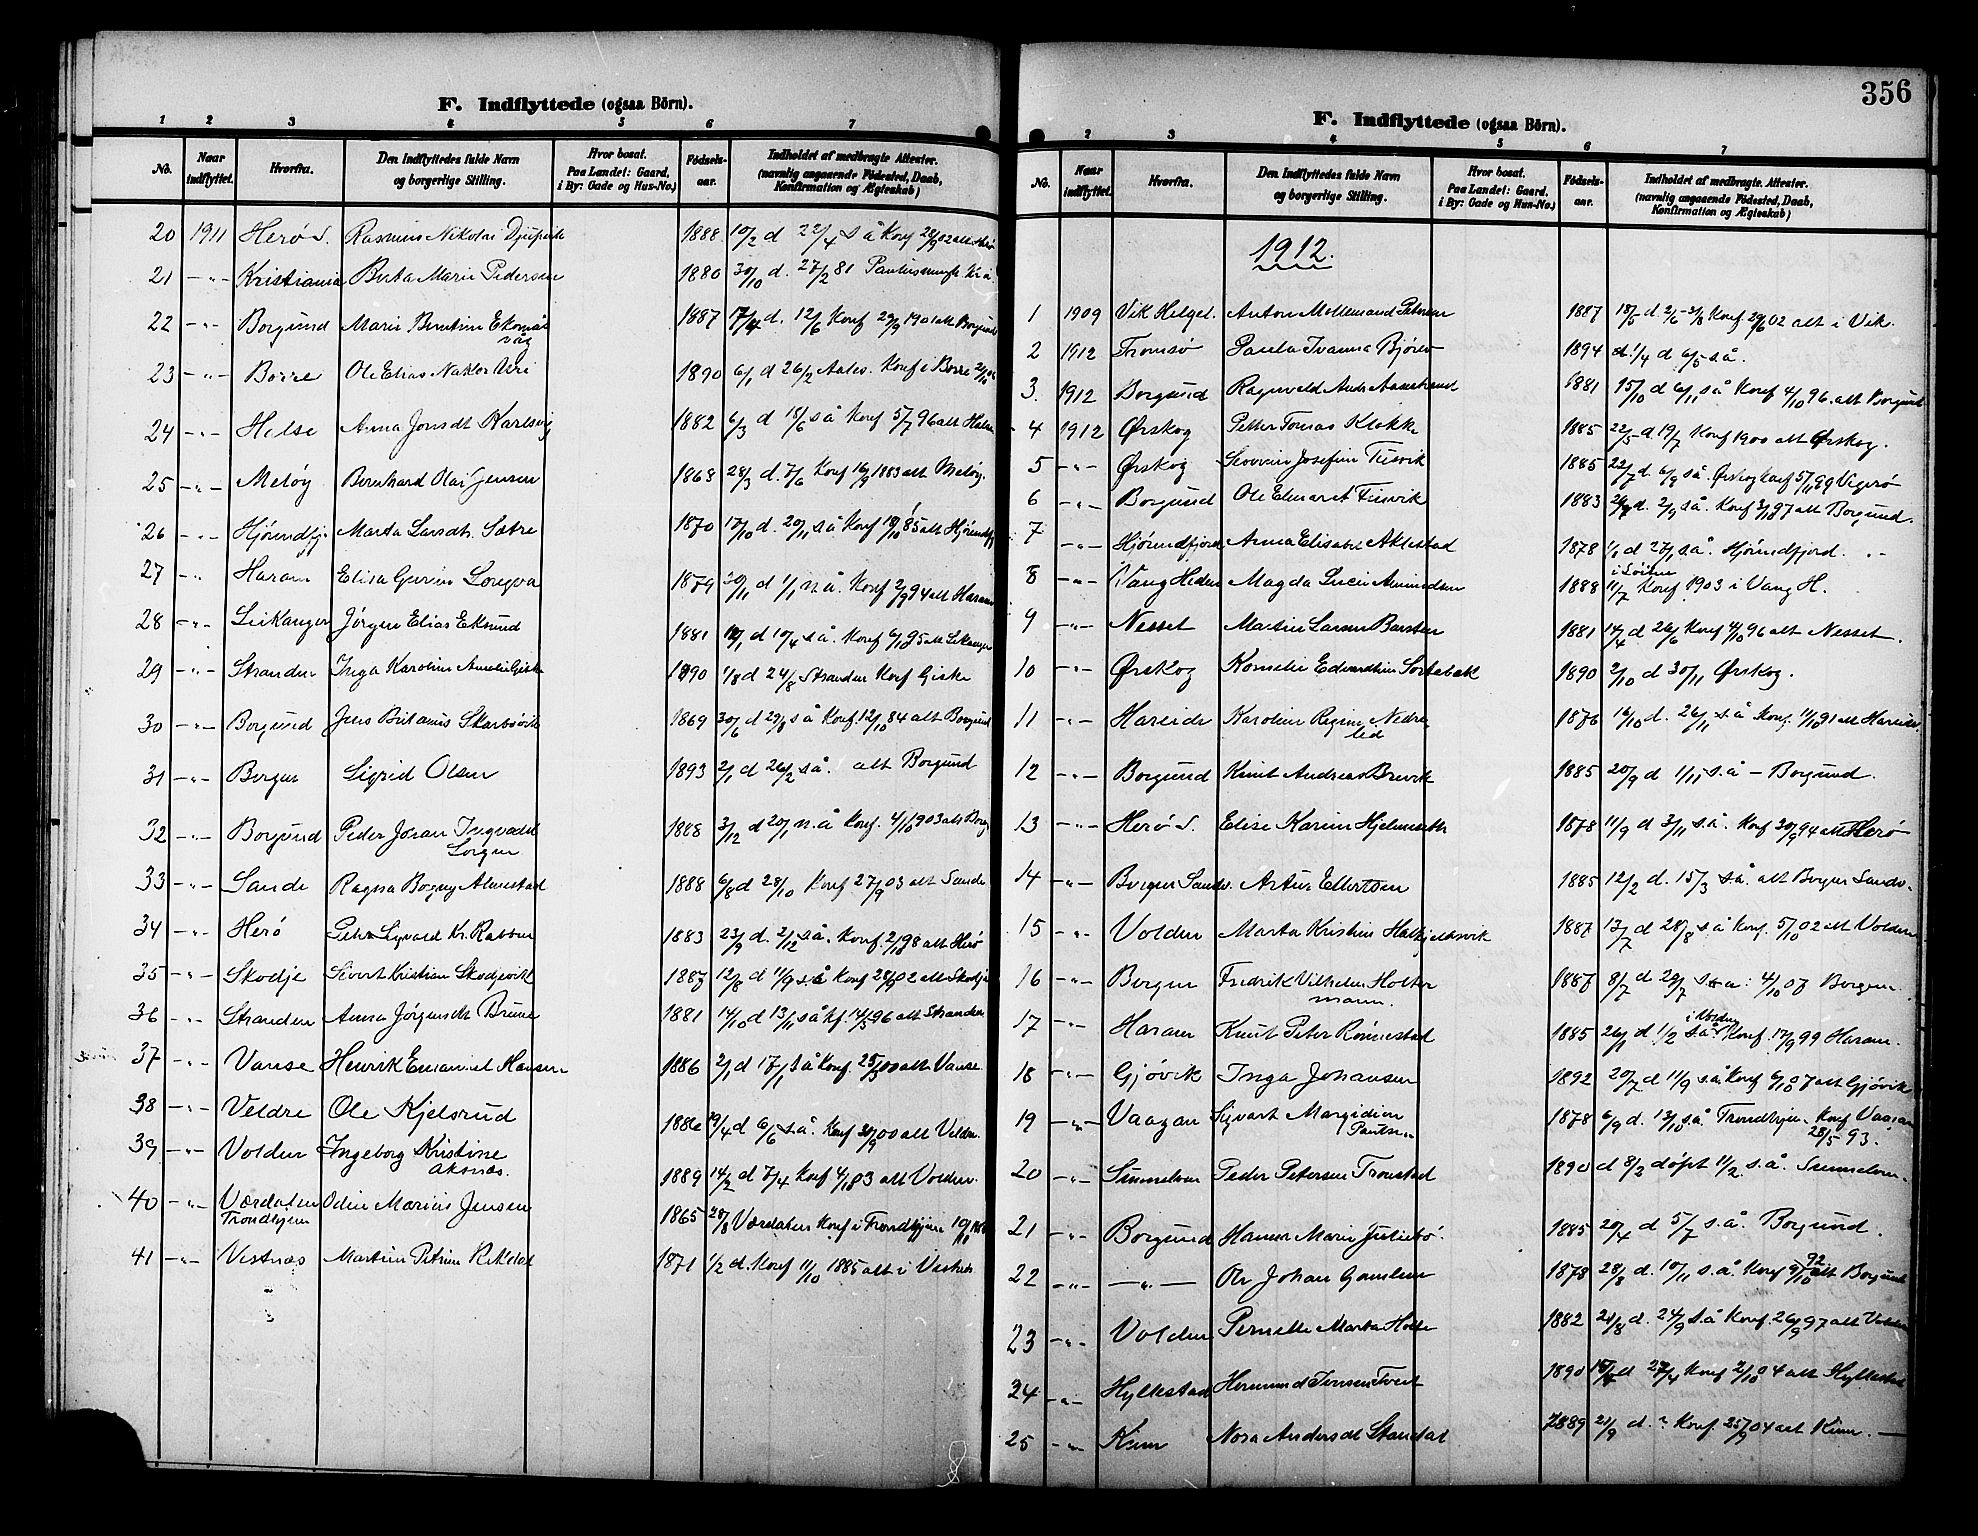 F. Indflyttede (ogsaa Börn).
1 2 3 4 5 6 7
No. Naar indflyttet. Hvorfra. Den Indflyttedes fulde Navn og borgerlige Stilling. Hvor bosat. Paa Landet: Gaard, i By: Gade og Hus-No.) Fødsels-aar. Indholdet af medbragte Attester. (navnlig angaaende Födested, Daab, Konfirmation og Ægteskab)
20 1911 Herø S. Rasmus Nikolai Djupvik 1888 10/2 d 22/4 s å Konf 28/9 02 alt Herø
21 -"- Kristiania Berta Marie Pedersen 1880 30/10 d. 27/2 81 Kr.a
22 -"- Borgund Marie Bentine Eknæs våg 1887 17/4 d. 12/6 Konf 29/9 1901 alt Borgund
23 -"- Borre Ole Elias 1890 6/1 d 26/2 Aales. Konf i Borre
24 -"- Anna Jonsdt Karlsvig 1882 6/3 d 18/6 s å Konf 5/7 96 alt
25 -"- Meløy Bernhard Olai Jensen 1868 28/3 d. 7/6 Konf 16/9 1883 alt Meløy.
26 -"- Hjørundfj. Marta Larsdt. Sætre 1870 17/10 d. 20/11 s å Konf 18/10 85 alt Hjørundfj
27 -"- Haram Elisa Gurine Longva 1879 30/11 d 1/1 n. å. Konf 2/9 94 alt Haram
28 -"- Leikanger Jørgen Elias Eksund 1881 d 10/4 s. å. Konf 95 alt Leikanger
29 -"- Stranden Inga Karoline Amalie Giske 1890 1/8 d 24/8 Stranden Konf Giske
30 -"- Borgund Jens Skarbøvik 1869 30/6 d 29/8 s å Konf. 12/10 84 alt Borgund
31 -"- Bergen Sigrid Olsen 1893 2/1 d 26/2 s å. alt Borgund
32 -"- Borgund Peder Johan Ingvald Sorgen 1888 3/12 d 20/1 n. å Konf. 4/10 1903 alt Borg.
33 -"- Sande Ragna Borgny Almestad 1888 6/8 d 28/10 Konf 27/9 03 alt Sande
34 -"- Herø Peter Sigvald Kr. Rabben 1883 23/9 d. 2/12 s å. Konf. 2/10 98 alt Herø
35 -"- Skodje Sivert Kristian Skodjevik 1887 12/8 d 11/9 s å Konf 28/9 02 alt Skodje
36 -"- Stranden Anna Jørgensdt Brune 1881 14/10 d 13/11 s å kf 14/5 96 alt Stranden
37 -"- Vanse Henrik Emanuel Hansen 1886 2/1 d 17/1 s å Konf. 25/3 00 alt Vanse
38 -"- Veldre Ole Kjelsrud 1886 19/4 d 6/6 s. å. Konf 30/9 00 alt Veldre.
39 -"- Volden Ingeborg Kristine Aksnæs. 1889 14/2 d 7/4 Konf 4/10 03 alt Volden.
40 -"- Værdalen Trondhjem Odin Marius Jensen 1865 28/8 Værdalen Konf i Trondhjem
41 -"- Vestnæs Martin Petrine 1871 1/2 d. Konf 11/10 1885 alt i Vestnes
356
F. Indflyttede (ogsaa Börn).
2 3 4 5 6 7
No. Naar indflyttet. Hvorfra. Den Indflyttedes fulde Navn og borgerlige Stilling. Hvor bosat. Paa Landet: Gaard. i By: Gade og Hus-No.) Födsels-aar. Indholdet af medbragte Attester. (navnlig angaaende Födested, Daab, Konfirmation og Ægteskab)
1912.
1 1909 Vik Helgel. Anton Petersen 1887 18/5 d Konf 29/6 02 alt i Vik.
2 1912 Tromsø Paula Ivanna Bjørø 1894 d. 1/4 d 6/5 s. å.
3. 1912 Borgund Ragnvald Andr. Aasestrand 1881 15/10 d 6/11 s å Konf 4/10 96. alt Borgund
4 1912 Ørskog Petter Tomas Klokk 1885 22/5 d. 19/7 Konf 1900 alt Ørskog.
5 -"- Ørskog Severine Josefine Tusvik 1885 22/7 d. 6/9 s å. Ørskog Konf 5/11 99 Vigerø
6 -"- Borgund Ole Edvard Tusvik 1883 d. 2/9 s å. Konf 97 alt Borgund.
7 -"- Hjørundfjord Anna Elisabet Aklestad 1878 1/1 d 27/1 s å. Hjørundfjord. -"-
8 -"- Vang Hedem Magda Lucie Amundsen 1888 11/7 Konf 1903 i Vang H.
9 -"- Nesset Martin Larsen Bersten 1881 14/4 d. 26/6 Konf 4/10 96 alt Nesset.
10 -"- Ørskog Kornelie Edvardine Sortebæk 1890 2/10 d 30/11 Ørskog.
11 -"- Hareide Karoline Regine Nedre lid 1876 16/10 d. 26/11 s. å Konf. 11/10 91 alt Hareide
12 -"- Borgund Knut Andreas Brevik 1885 20/9 d 1/11 s. å - Borgund.
13 -"- Herø S. Elise Karine Hjelmeseth 1878 11/9 d 3/11 s. å. Konf 30/9 94 alt Herø
14 -"- Bergen Sandv. Artur Ellertsen 1885 12/2 d. 15/3 s. å. alt Bergen Sandv.
15 -"- Volden Marta Kristine Halkjelsvik 1887 13/7 d 28/8 s å Konf. 5/10 02 alt Volden
16 -"- Bergen Fredrik Vilhelm Holter mann. 1887 8/7 d 29/7 s. a: 4/10 07 Bergen.
17 -"- Haram Knut Peter Rønnestad 1885 26/1 d 1/2 s. å. i Volden Konf. 17/9 99 Haram.
18 -"- Gjøvik Inga Johansen 1892 20/7 d 11/9 s. å Konf 6/10 07 alt Gjøvik
19 -"- Vaagan Sigvart Margidion Paulsen 1878 6/9 d. 13/10 s å. Trondhjem. Konf Vaagan 28/5 93.
20 -"- Sunnelven Peder Petersen Tronstad 1890 d 8/2 døpt 11/2. s. å. Sunnelven.
21 -"- Borgund Hanna Marie Juliebø. 1885 20/4 d 5/7 s. å. Borgund.
22 -"- -"- Ole Johan Gamlem 1878 28/8 d. 10/11 s. å. Konf 9/10 92 alt Borgund
23 -"- Volden Pernille Marta Holte 1882 21/8 d. 24/9 s. å Konf 26/9 97 alt Volden
24 -"- Hyllestad Hermund Jensen Tveit 1890 15/4 d 27/4 Konf 2/10 04 alt Hyllestad
25 -"- Kinn Nora Andersdt Standal 1889 21/9 d. ? Konf. 25/9 04 alt Kinn.